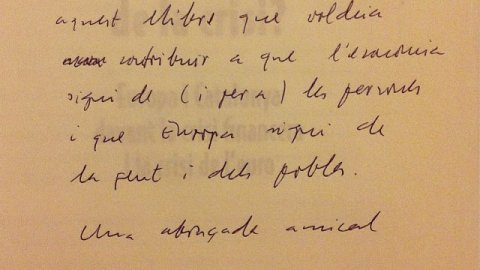 de la crisi?
aquest llibre que voldria
contribuir a que l'economia
sigui de (i per a) les persones
i que Europa sigui de
la gent i dels pobles.
Una abraçada amical